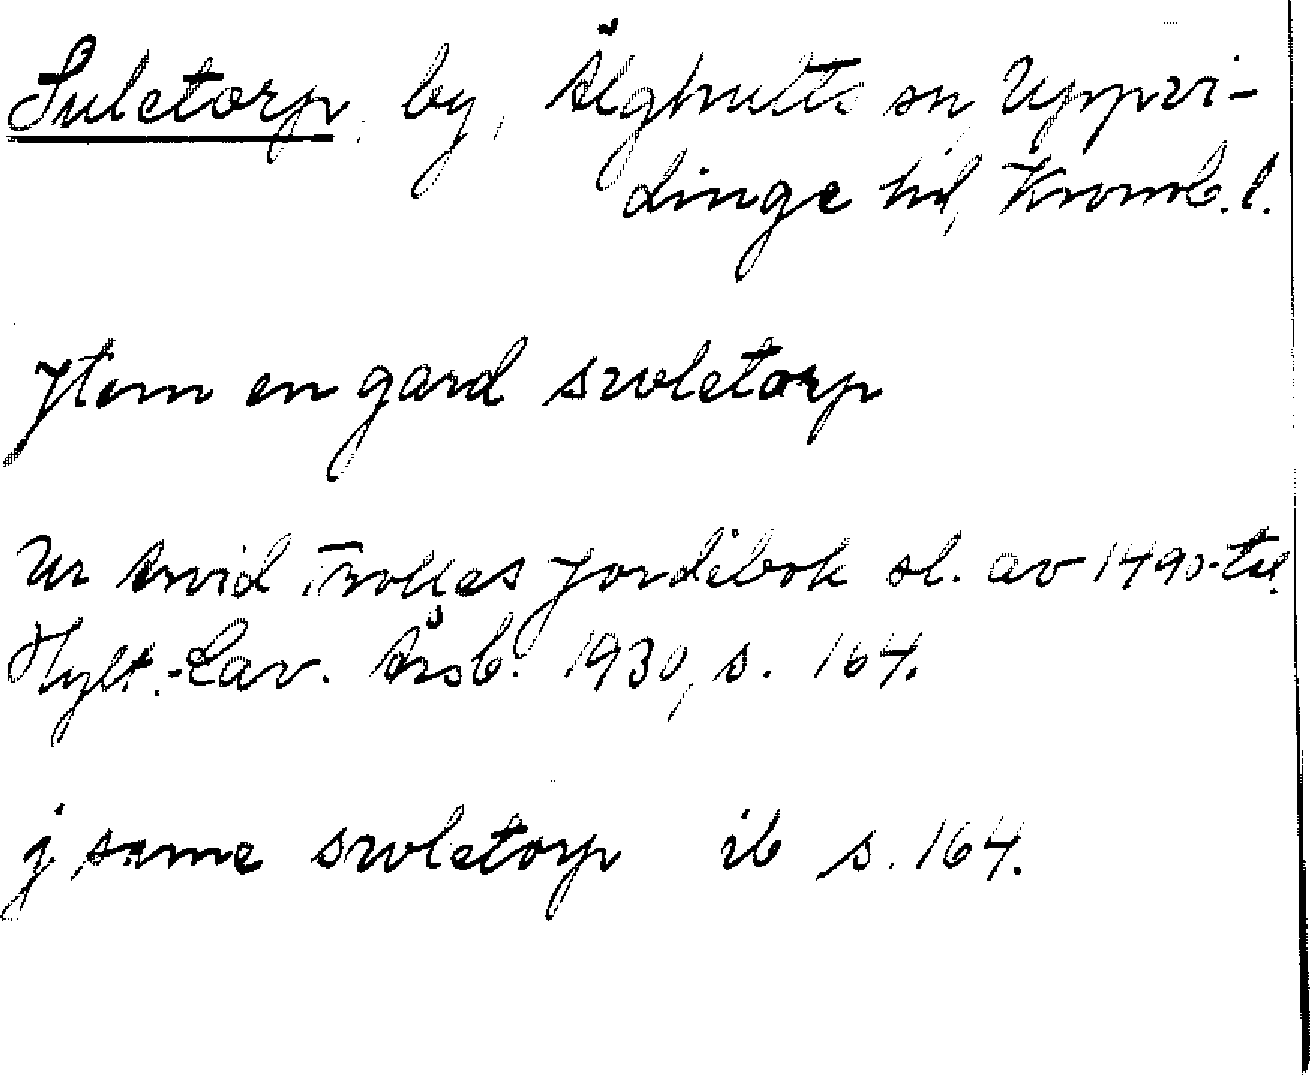 Suletorp, by, Älghults sn, Uppvi-
dinge hd, Kronob. l.
Jtem en gard swletorp
Ur Arvid Trolles Jordebok sl. av 1490-tal
Hylt.-Cav. Årsb. 1930, s. 164.
j same swletorp ib s. 164.